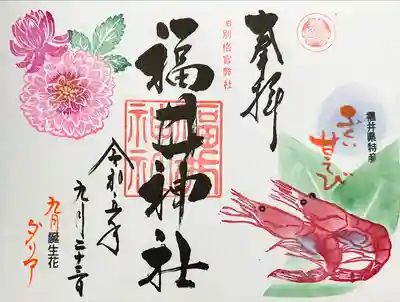 奉拝
旧別格官幣社
福井神社
福井
神社
令和五年
九月二十三日
九月誕生花
ダリア
福井県特産
ふくい
甘えび